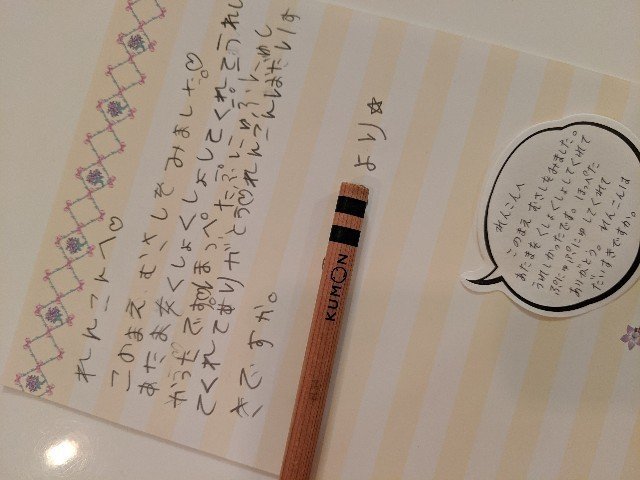 れんこんへ♡
このまえ むさしを みました♡
あたまをくしょくしょしてくれてうれし
かったです。ほっぺたぷにゅぷにゅし
てくれてありがとう♡れんこんはだいす
きですか。
より☆
KUMON
れんこんへ
このまえ むさしをみました。
あたまをくしょくしょしてくれて
うれしかったです。 ほっぺた
ぷにゅぷにゅしてくれて
ありがとう。 れんこんは
だいすきですか。